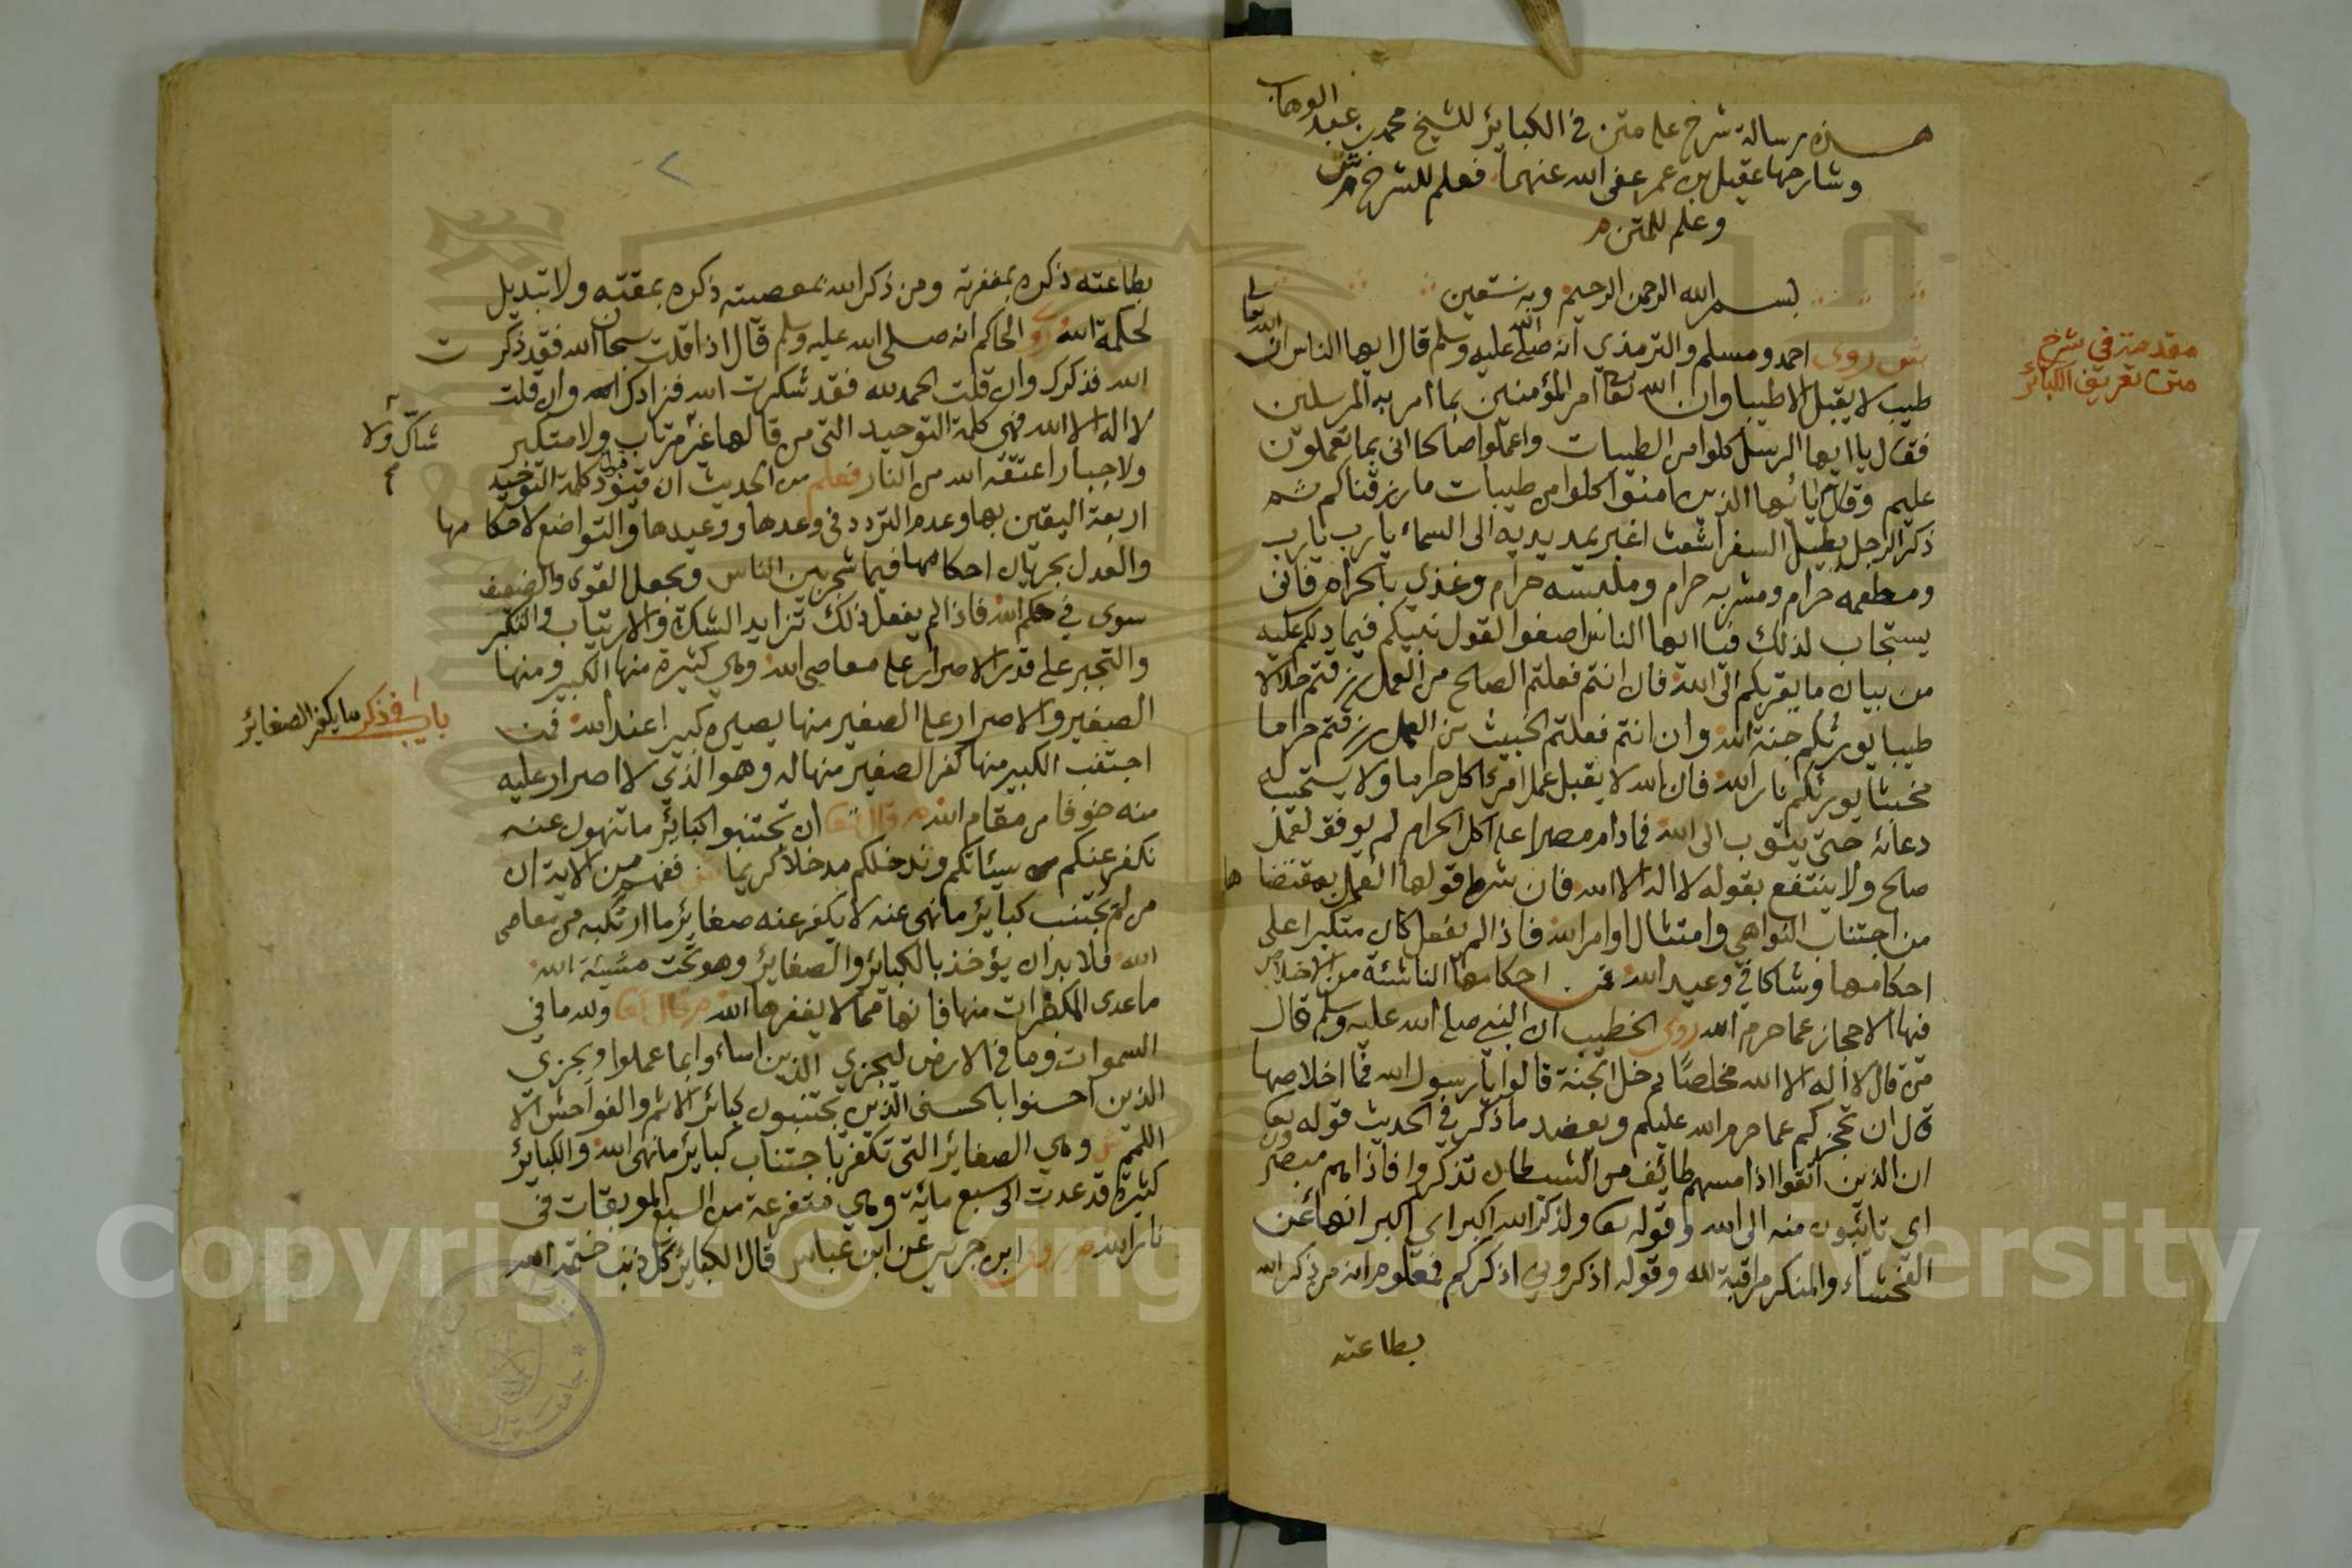 هذه رسالة شرح على متن في الكبائر للشيخ محمد بن عبد الوهاب
وشارحها عقيل بن عمر عفى الله عنهما فعلم للشرح ش
وعلم للمتن م
بسم الله الرحمن الرحيم وبه نستعين
مقدمة في شرح
متن تعريف الكبائر
ش روى احمد ومسلم والترمذي انه صلى الله عليه وسلم قال ايها الناس ان الله تعالى
طيب لا يقبل الا طيبا وان الله تعا امر المؤمنين بما امر به المرسلين
فقال يا ايها الرسل كلوا من الطيبات واعملوا صالحا اني بما تعملون
عليم وقال يا ايها الذين امنوا كلوا من طيبات ما رزقناكم ثم
ذكر الرجل يطيل السفر اشعث اغبر يمد يديه الى السماء يا رب يا رب
ومطعمه حرام ومشربه حرام وملبسه حرام وغذي بالحرام فانى
يستجاب لذلك فيا ايها الناس اصغوا لقول نبيكم فيما دلكم عليه
من بيان ما يقربكم الى الله فان انتم فعلتم الصالح من العمل رزقتم حلالا
طيبا يورثكم جنة الله وان انتم فعلتم الخبيث من العمل رزقتم حراما
مخبثا يورثكم نار الله فان الله لا يقبل عمل امرئ اكل حراما ولا يستجيب له
دعائه حتى يتوب الى الله فما دام مصرا على اكل الحرام لم يوفق لعمل
صالح ولا ينتفع بقوله لا اله الا الله فان شرط قولها العمل بمقتضاها
من اجتناب النواهي وامتثال اوامر الله فاذا لم يفعل كان متكبرا على
احكامها وشاكا في وعيد الله فمن احكامها الناشئة من الاخلاص
فيها الاحجاز عما حرم الله روى الخطيب ان النبي صلى الله عليه وسلم قال
من قال لا اله الا الله مخلصا دخل الجنة قالوا يا رسول الله فما اخلاصها
قال ان تحجزكم عما حرم الله عليكم ويعضد ما ذكر في الحديث قوله تعا
ان الذين اتقوا اذا مسهم طائف من الشيطان تذكروا فاذا هم مبصرون
اي تائبون منه الى الله وقوله تعا ولذكر الله اكبر اي اكبر انهاء عن
الفحشاء والمنكر مراقبة لله وقوله اذكروني اذكركم فمعلوم انه من ذكر الله
بطاعته
بطاعته ذكره بمغفرته ومن ذكر الله بمعصيته ذكره بمقته ولا تبديل
لحكمة الله روى الحاكم انه صلى الله عليه وسلم قال اذا قلت سبحان الله فقد ذكرت
الله فذكرك وان قلت الحمد لله فقد شكرت الله فزادك الله وان قلت
لا اله الا الله فهي كلمة التوحيد التي من قالها غير مرتاب ولا متكبر
شاك ولا
ولا جبار اعتقه الله من النار فعلم من الحديث ان قيود كلمة التوحيد
اربعة اليقين بها وعدم التردد في وعدها ووعيدها والتواضع لاحكامها
والعدل بجريان احكامها فيما شجر بين الناس وبجعل القوي والضعيف
سوى في حكم الله فاذا لم يفعل ذلك تزايد الشك والارتياب والتكبر
والتجبر على قدر الاصرار على معاصي الله وهي كثيرة منها الكبير ومنها
باب في ذكر ما يكفر الصغائر
الصغير والاصرار على الصغير منها يصيره كبيرا عند الله فمن
اجتنب الكبير منها كفر الصغير منها له وهو الذي لا اصرار عليه
منه خوفا من مقام الله م قال تعا ان تجتنبوا كبائر ما تنهون عنه
نكفر عنكم سيئاتكم وندخلكم مدخلا كريما ش ففهم من الاية ان
من لم يجتنب كبائر ما نهى عنه لا يكفر عنه صغائر ما ارتكبه من معاصي
الله فلا بد ان يؤخذ بالكبائر والصغائر وهو تحت مشيئة الله
ما عدى المكفرات منها فانها مما لا يغفرها الله م قال تعا ولله ما في
السموات وما في الارض ليجزي الذين اساءوا بما عملوا ويجزي
الذين احسنوا بالحسنى الذين يجتنبون كبائر الاثم والفواحش الا
اللمم ش وهي الصغائر التي تكفر باجتناب كبائر ما نهى الله والكبائر
كثيرة قد عدت الى سبع مائة وهي متفرعة من السبع الموبقات في
نار الله م روى ابن جرير عن ابن عباس قال الكبائر كل ذنب ختمه الله
Copyright © King Saud University